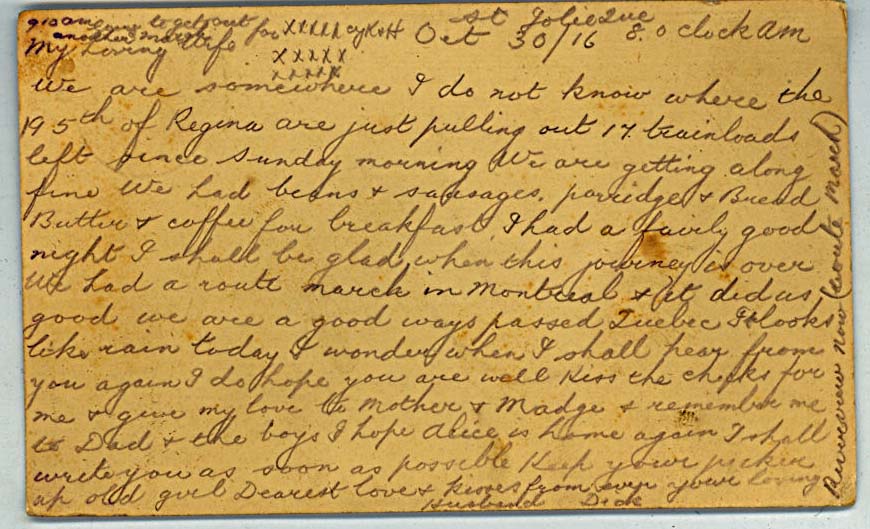 St Jolie Que
Oct 30/16 8.0 clock am
9 10 am going to get out for xxxxx
another march xxxxx
xxxxx
My Loving Wife
We are somewhere I do not know where the
195th of Regina are just pulling out 17 trainloads
left since Sunday morning We are getting along
fine We had beans & sausages, porridge & Bread
Butter & coffee for breakfast I had a fairly good
night I shall be glad when this journey is over
We had a route march in Montreal & it did us
good we are a good ways passed Quebec It looks
like rain today I wonder when I shall hear from
you again I do hope you are well Kiss the chicks for
me & give my love to Mother & Madge & remember me
to Dad & the boys I hope Alice is home again I shall
write you as soon as possible Keep your pecker
up old girl Dearest love & kisses from ever your loving
Husband Dick
now (route march)